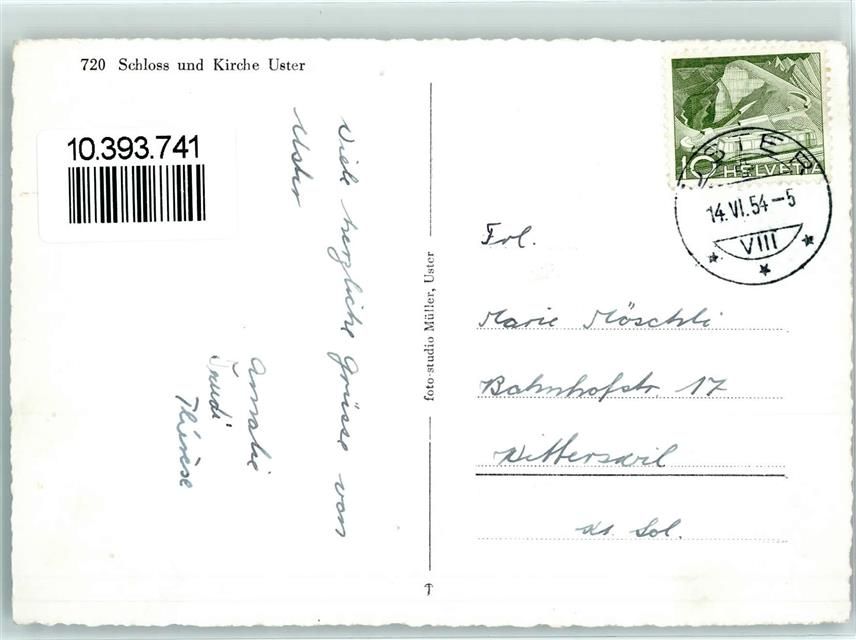 720 Schloss und Kirche Uster
10.393.741
Viele herzliche Grüsse von
Uster
Amalie
Trudi
Thérèse
foto-studio Müller, Uster
10 HELVETIA
USTER
14.VI.54-5
VIII
Frl.
Marie Möschli
Bahnhofstr. 17
Witterswil
Kt. Sol.